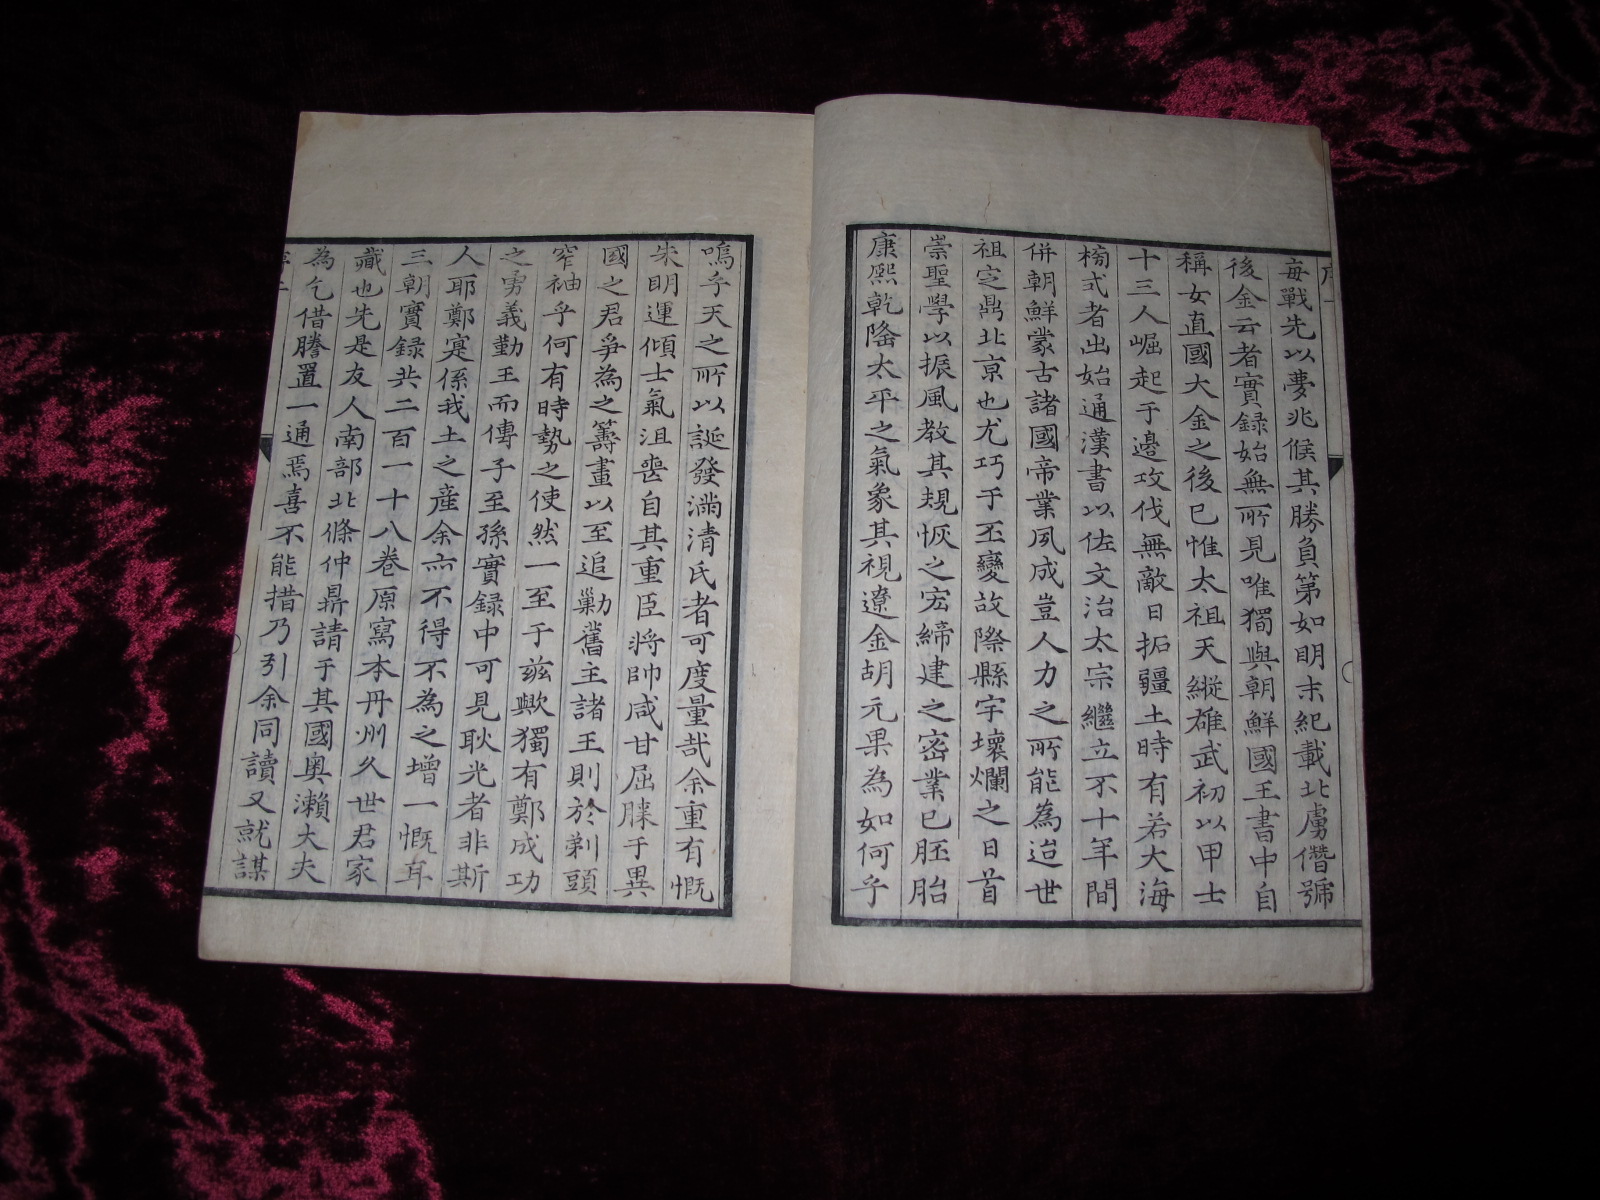 序一
每戰先以夢兆候其勝負第如明末紀載北虜僭號
後金云者實録始無所見唯獨與朝鮮國王書中自
稱女直國大金之後已惟太祖天縱雄武初以甲士
十三人崛起于邊攻伐無敵日拓疆土時有若大海
榜式者出始通漢書以佐文治太宗繼立不十年間
併朝鮮蒙古諸國帝業夙成豈人力之所能為迨世
祖定鼎北京也尤巧于丕變故際縣宇壞爛之日首
崇聖學以振風教其規恢之宏締建之密業已胚胎
康熙乾隆太平之氣象其視遼金胡元果為如何乎
嗚乎天之所以誕發滿清氏者可度量哉余重有慨
朱明運傾士氣沮喪自其重臣將帥咸甘屈膝于異
國之君爭為之籌畫以至追勦舊主諸王則於剃頭
窄袖乎何有時勢之使然一至于茲歟獨有鄭成功
之勇義勤王而傳子至孫實録中可見耿光者非斯
人耶鄭寔係我土之產余亦不得不為之增一慨耳
三朝實録共二百一十八卷原寫本丹州久世君家
藏也先是友人南部北條仲鼎請于其國奧瀨大夫
為乞借謄置一通焉喜不能措乃引余同讀又就謀